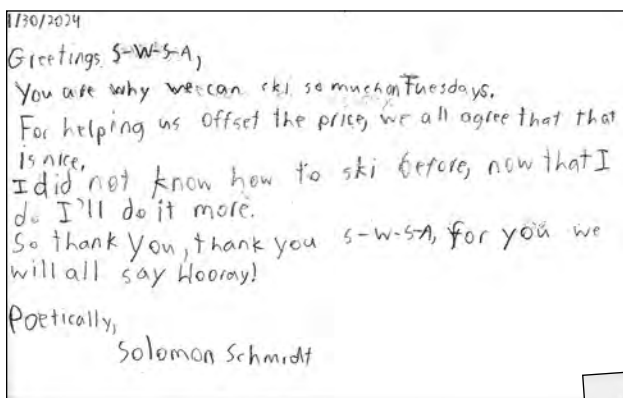 1/30/2024
Greetings S-W-S-A,
You are why we can ski so much on Tuesdays.
For helping us offset the price, we all agree that that
is nice,
I did not know how to ski before, now that I
do I'll do it more.
So thank you, thank you S-W-S-A, for you we
will all say Hooray!
Poetically,
Solomon Schmidt